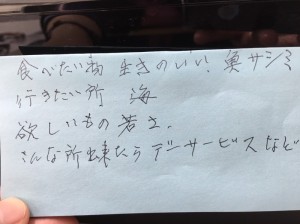 食べたい物 生きのいい! 魚サシミ
行きたい所 海
欲しいもの 若さ.
こんな所出来たら デーサービスなど